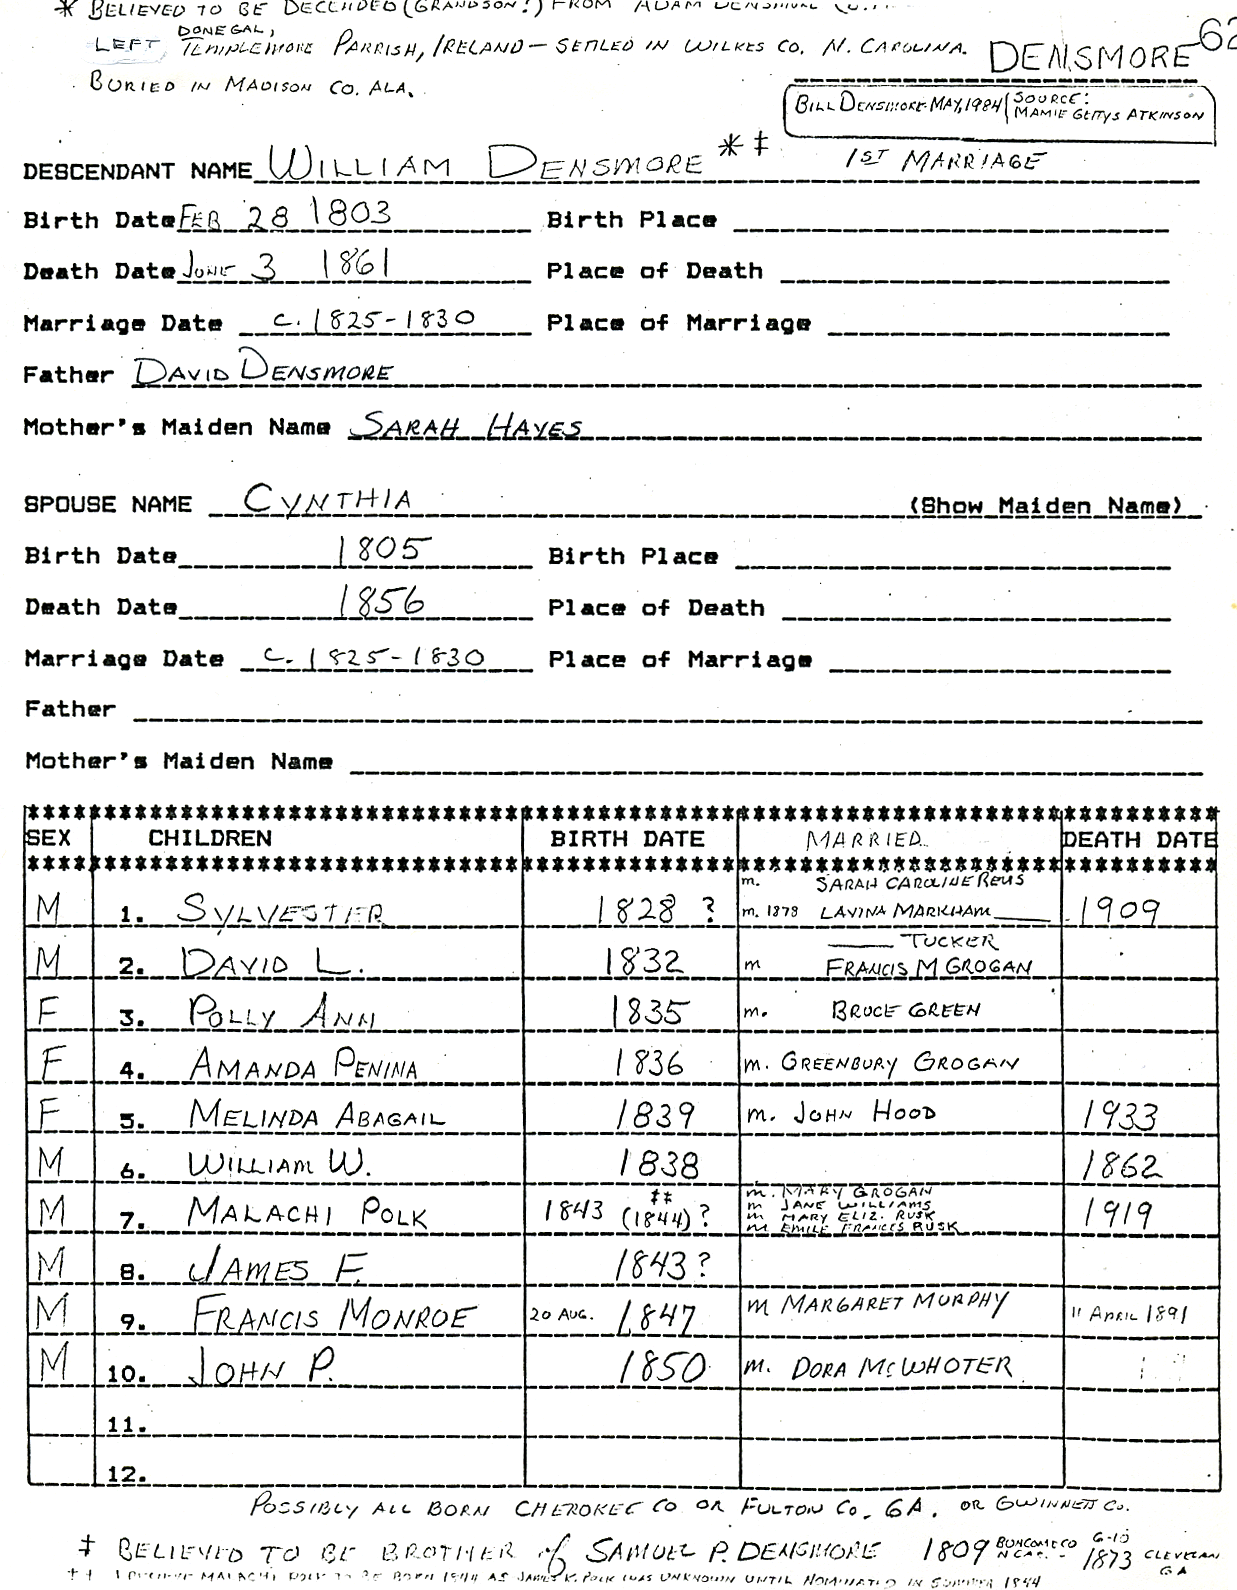 * BELIEVED TO BE DECENDED (GRANDSON?) FROM ADAM DENSMORE
DONEGAL,
LEFT TEMPLEMORE PARRISH, IRELAND — SETLED IN WILKES CO. N. CAROLINA.
DENSMORE 62
BURIED IN MADISON CO. ALA.
BILL DENSMORE MAY, 1984 SOURCE: MAMIE GETTYS ATKINSON
DESCENDANT NAME WILLIAM DENSMORE * ‡ 1ST MARRIAGE
Birth Date FEB 28 1803 Birth Place
Death Date JUNE 3 1861 Place of Death
Marriage Date c. 1825-1830 Place of Marriage
Father DAVID DENSMORE
Mother's Maiden Name SARAH HAYES
SPOUSE NAME CYNTHIA (Show Maiden Name)
Birth Date 1805 Birth Place
Death Date 1856 Place of Death
Marriage Date c. 1825-1830 Place of Marriage
Father
Mother's Maiden Name
SEX CHILDREN BIRTH DATE MARRIED DEATH DATE
m. SARAH CAROLINE REUS
M 1. SYLVESTER 1828 ? m. 1878 LAVINA MARKHAM 1909
TUCKER
M 2. DAVID L. 1832 m FRANCIS M GROGAN
F 3. POLLY ANN 1835 m. BRUCE GREEN
F 4. AMANDA PENINA 1836 m. GREENBURY GROGAN
F 5. MELINDA ABAGAIL 1839 m. JOHN HOOD 1933
M 6. WILLIAM W. 1838 1862
m. MARY GROGAN
m JANE WILLIAMS
M 7. MALACHI POLK 1843 ‡‡ (1844)? m MARY ELIZ. RUSK 1919
m EMILE FRANCES RUSK
M 8. JAMES F. 1843?
M 9. FRANCIS MONROE 20 AUG. 1847 m MARGARET MURPHY 11 APRIL 1891
M 10. JOHN P. 1850 m. DORA McWHOTER
11.
12.
POSSIBLY ALL BORN CHEROKEE CO OR FULTON CO. GA. OR GWINNETT CO.
‡ BELIEVED TO BE BROTHER of SAMUEL P. DENSMORE 1809 BUNCOMECO N CAR. - 6-10 1873 CLEVELAN GA
‡‡ I BELIEVE MALACHI POLK TO BE BORN 1844 AS JAMES K. POLK WAS UNKNOWN UNTIL NOMINATED IN SUMMER 1844